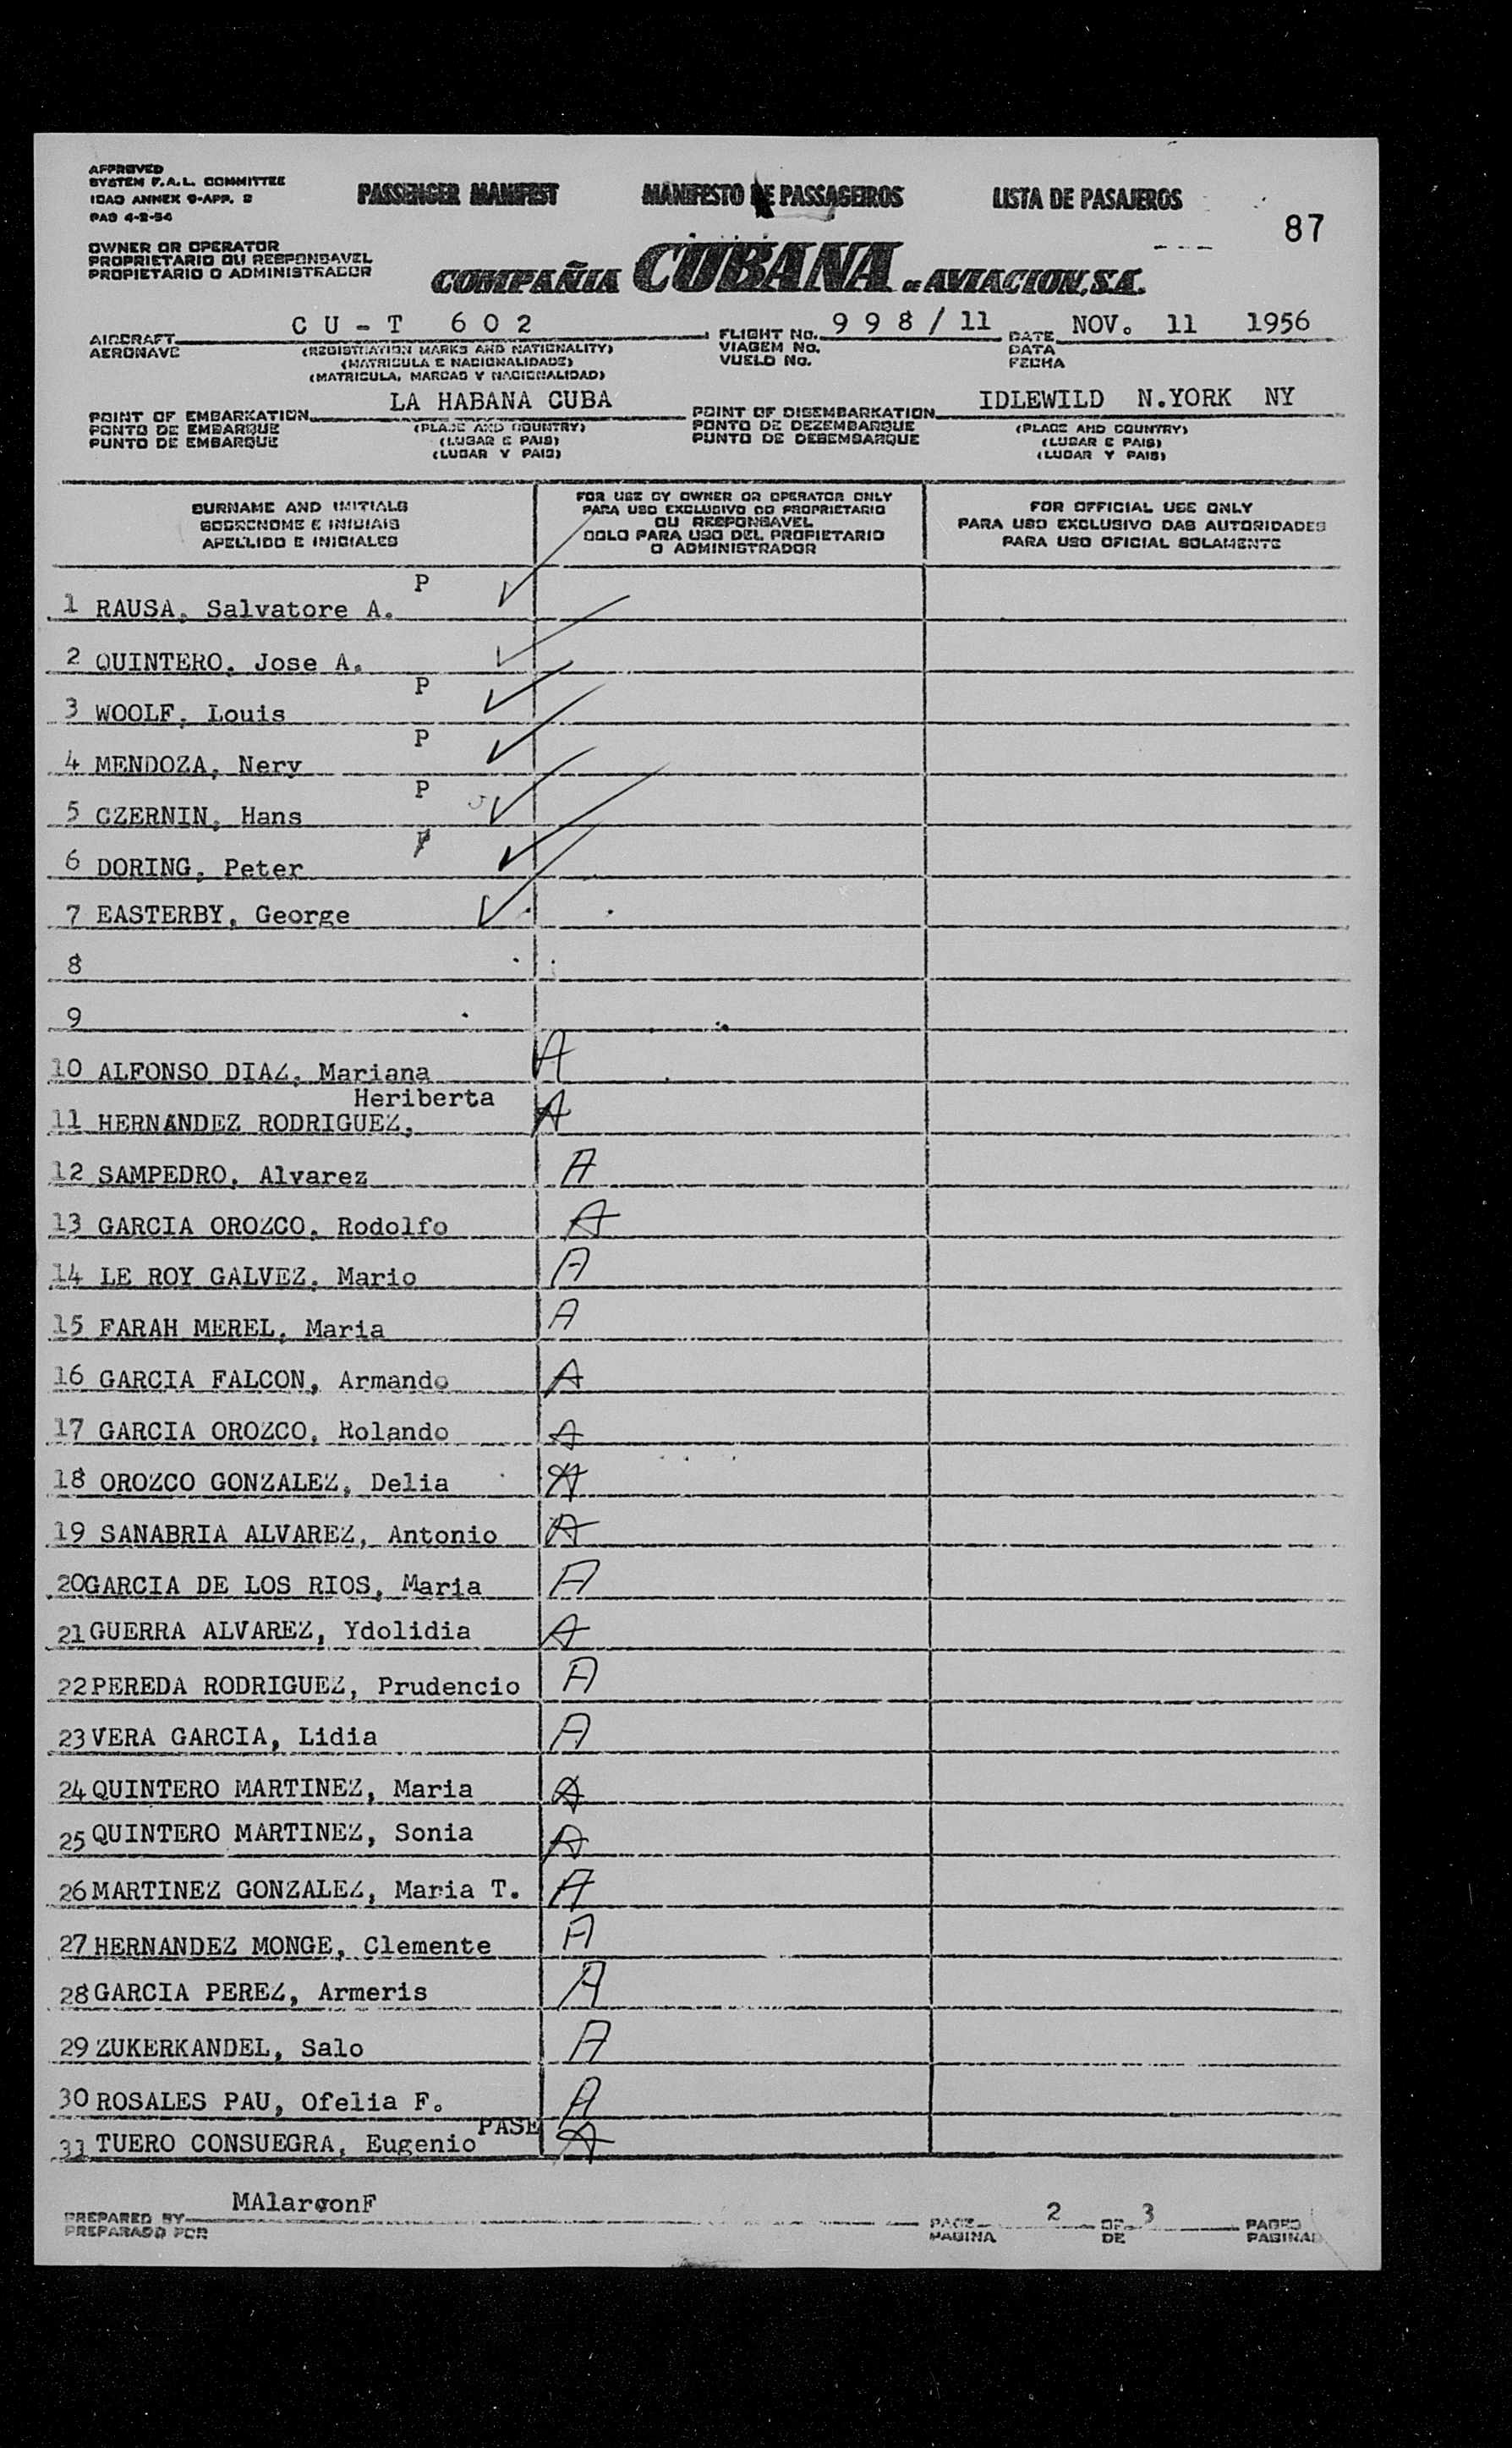 APPROVED
SYSTEM F.A.L. COMMITTEE
ICAO ANNEX 9-APP. 2
PAD 4-2-54
PASSENGER MANIFEST MANIFESTO DE PASSAGEIROS LISTA DE PASAJEROS
87
OWNER OR OPERATOR
PROPRIETARIO OU RESPONSAVEL
PROPIETARIO O ADMINISTRADOR
COMPAÑIA CUBANA DE AVIACION, S.A.
AIRCRAFT CU-T 602 FLIGHT No. 998/11 DATE NOV. 11 1956
AERONAVE (REGISTRATION MARKS AND NATIONALITY) VIAGEM No. DATA
(MATRICULA E NACIONALIDADE) VUELO No. FECHA
(MATRICULA, MARCAS Y NACIONALIDAD)
POINT OF EMBARKATION LA HABANA CUBA POINT OF DISEMBARKATION IDLEWILD N.YORK NY
PONTO DE EMBARQUE (PLACE AND COUNTRY) PONTO DE DEZEMBARQUE (PLACE AND COUNTRY)
PUNTO DE EMBARQUE (LUGAR E PAIS) PUNTO DE DESEMBARQUE (LUGAR E PAIS)
(LUGAR Y PAIS) (LUGAR Y PAIS)
SURNAME AND INITIALS
SOBRENOME E INICIAIS
APELLIDO E INICIALES
FOR USE BY OWNER OR OPERATOR ONLY
PARA USO EXCLUSIVO DO PROPRIETARIO
OU RESPONSAVEL
SOLO PARA USO DEL PROPIETARIO
O ADMINISTRADOR
FOR OFFICIAL USE ONLY
PARA USO EXCLUSIVO DAS AUTORIDADES
PARA USO OFICIAL SOLAMENTE
P
1 RAUSA, Salvatore A.
2 QUINTERO, Jose A.
P
3 WOOLF, Louis
P
4 MENDOZA, Nery
P
5 CZERNIN, Hans
P
6 DORING, Peter
7 EASTERBY, George
8
9
10 ALFONSO DIAZ, Mariana A
Heriberta
11 HERNANDEZ RODRIGUEZ, A
12 SAMPEDRO, Alvarez A
13 GARCIA OROZCO, Rodolfo A
14 LE ROY GALVEZ, Mario A
15 FARAH MEREL, Maria A
16 GARCIA FALCON, Armando A
17 GARCIA OROZCO, Rolando A
18 OROZCO GONZALEZ, Delia A
19 SANABRIA ALVAREZ, Antonio A
20 GARCIA DE LOS RIOS, Maria A
21 GUERRA ALVAREZ, Ydolidia A
22 PEREDA RODRIGUEZ, Prudencio A
23 VERA GARCIA, Lidia A
24 QUINTERO MARTINEZ, Maria A
25 QUINTERO MARTINEZ, Sonia A
26 MARTINEZ GONZALEZ, Maria T. A
27 HERNANDEZ MONGE, Clemente A
28 GARCIA PEREZ, Armeris A
29 ZUKERKANDEL, Salo A
30 ROSALES PAU, Ofelia F. A
PASE
31 TUERO CONSUEGRA, Eugenio A
PREPARED BY MAlarconF PAGE 2 OF 3 PAGES
PREPARADO POR PAGINA DE PAGINAS